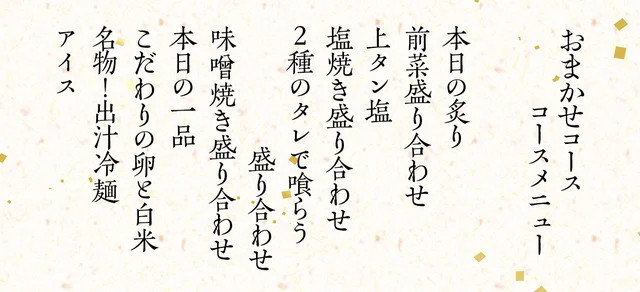 おまかせコース
コースメニュー
本日の炙り
前菜盛り合わせ
上タン塩
塩焼き盛り合わせ
２種のタレで喰らう
盛り合わせ
味噌焼き盛り合わせ
本日の一品
こだわりの卵と白米
名物！出汁冷麺
アイス